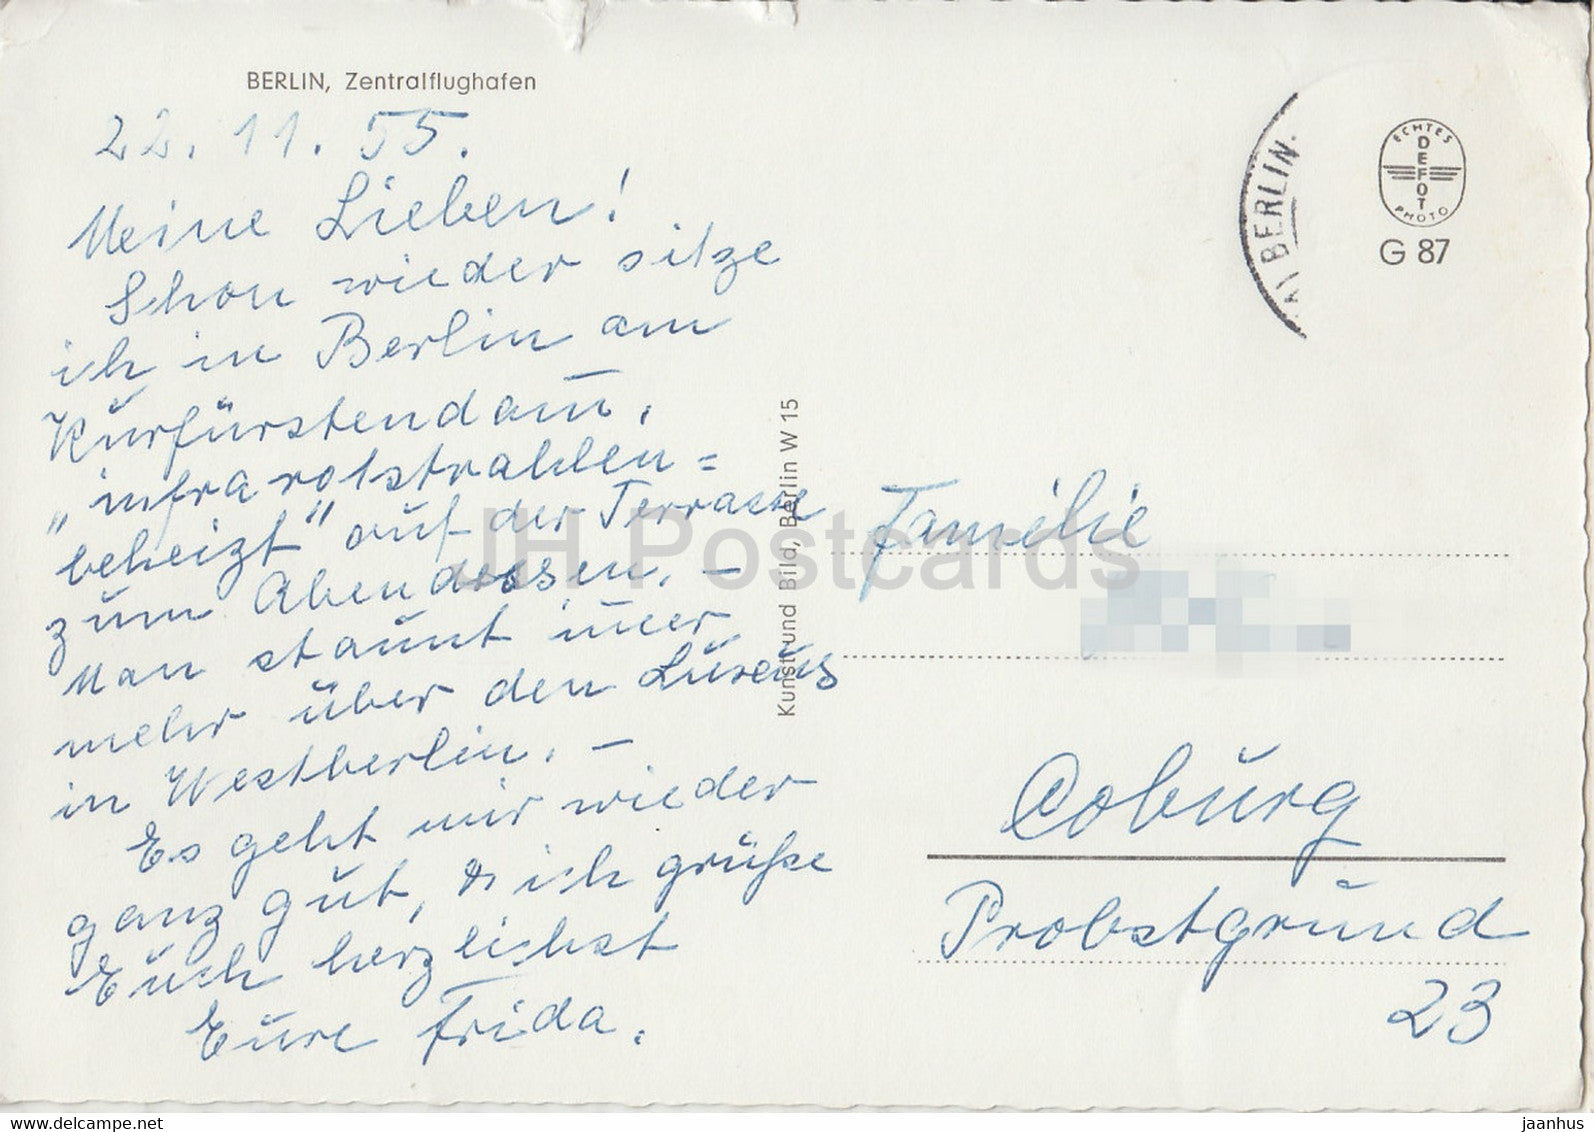 BERLIN, Zentralflughafen
22.11.55.
Meine Lieben!
Schon wieder sitze
ich in Berlin am
Kurfürstendam̅,
„infrarotstrahlen=
beheizt" auf der Terrasse
zum Abendessen. –
Man staunt im̅er
mehr über den Luxus
in Westberlin. –
Es geht mir wieder
ganz gut, & ich grüße
Euch herzlichst
Eure Frida.
Kunst und Bild, Berlin W 15
BERLIN
ECHTES
DEFOT
PHOTO
G 87
Familie
Coburg
Probstgrund
23
JH Postcards
delcampe.net
jaanhus